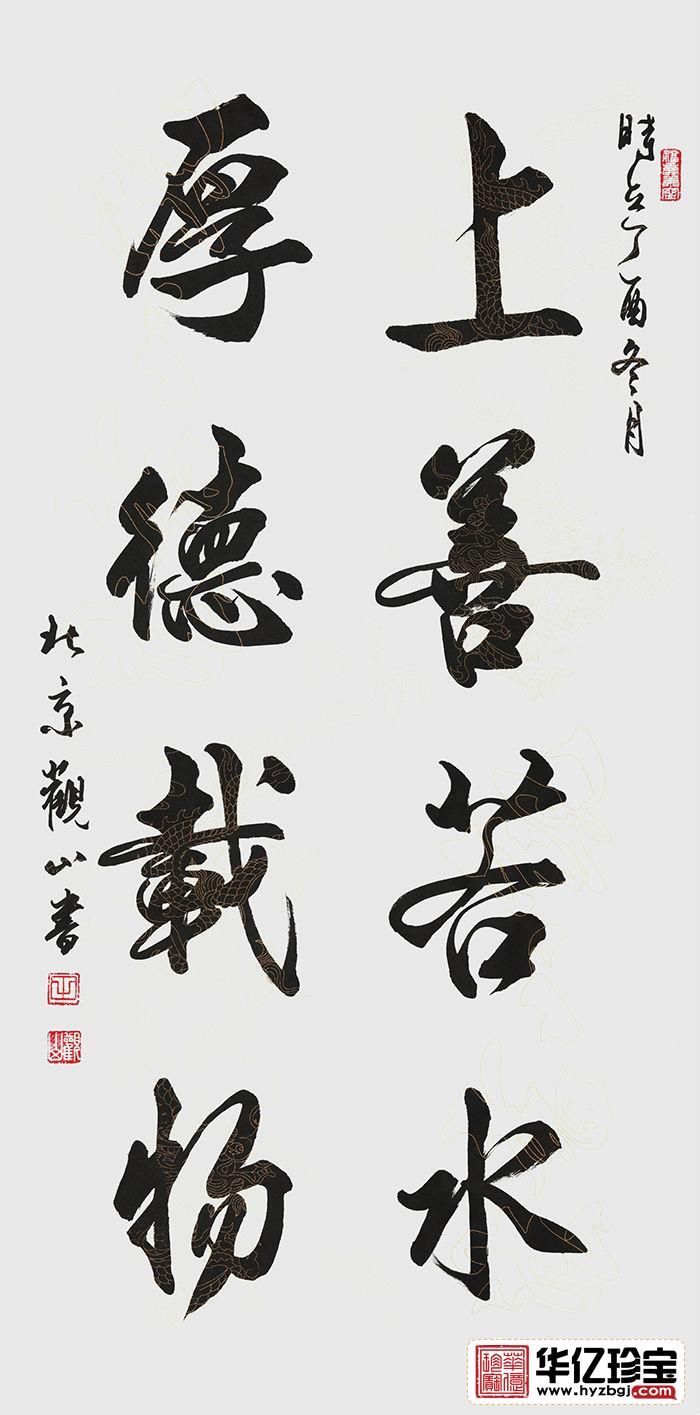 時在丁酉冬月
上善若水
厚德載物
北京觀山書
华亿珍宝
www.hyzbgj.com